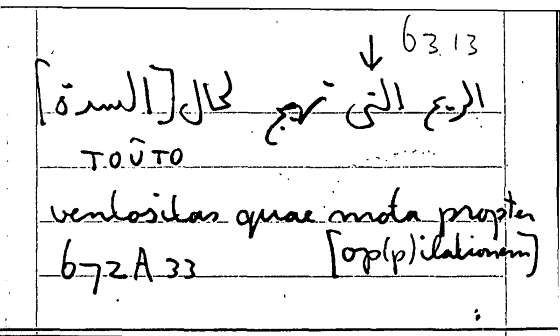 63.13
الريح التي تهيج لحال [السدة]
τοῦτο
ventositas quae mota propter
672A33 [op(p)ilationem]